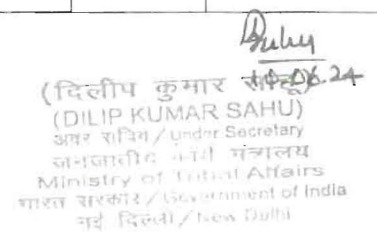 (दिलीप कुमार साहू)
(DILIP KUMAR SAHU)
अवर सचिव / Under Secretary
जनजातीय कार्य मंत्रालय
Ministry of Tribal Affairs
भारत सरकार / Government of India
नई दिल्ली / New Delhi